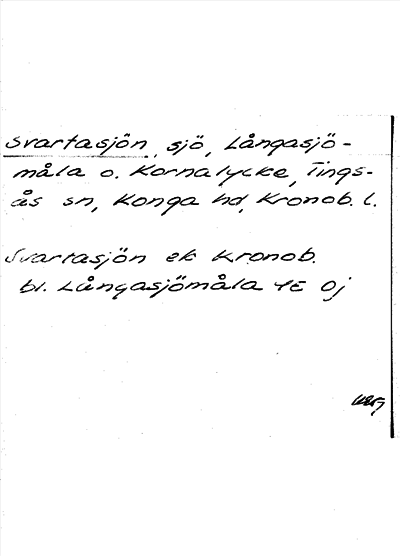 Svartasjön, sjö, Långasjö-
måla o. Kornalycke, Tings-
ås sn, Konga hd, Kronob. l.
Svartasjön ek Kronob.
bl. Långasjömåla 4E 0j